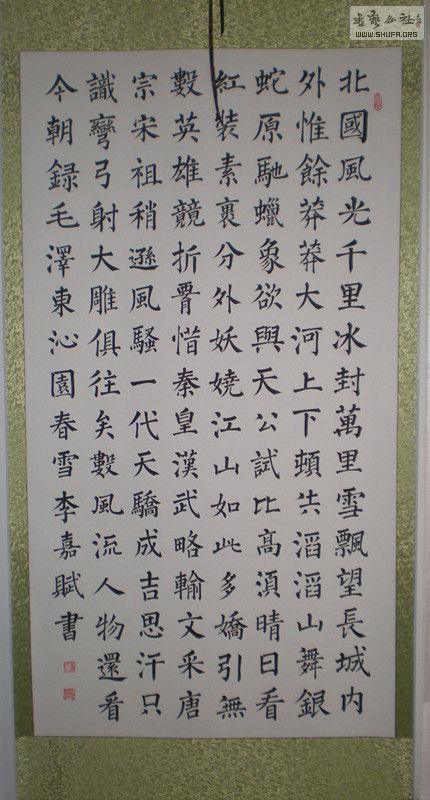 北國風光千里冰封萬里雪飄望長城内
外惟餘莽莽大河上下頓失滔滔山舞銀
蛇原馳蠟象欲與天公試比高湏晴日看
紅裝素裹分外妖嬈江山如此多嬌引無
數英雄競折惜秦皇漢武略輸文采唐
宗宋祖稍遜風騷一代天驕成吉思汗只
識彎弓射大雕俱往矣數風流人物還看
今朝録毛澤東沁園春雪李嘉賦書
書藝公社
WWW.SHUFA.ORG